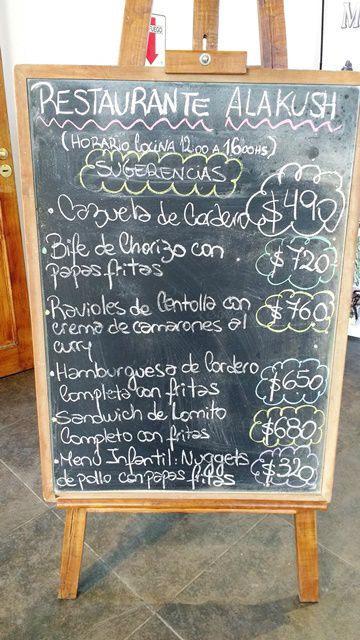 FUEGO
M
RESTAURANTE ALAKUSH
(HORARIO COCINA 12:00 A 16:00HS)
SUGERENCIAS
• Cazuela de Cordero $490
• Bife de Chorizo con $720
papas fritas
• Ravioles de Centolla con $760
crema de camarones al
curry
• Hamburguesa de Cordero
completa con fritas $650
• Sandwich de Lomito
Completo con fritas $680
• Menú Infantil: Nuggets $320
de pollo con papas fritas